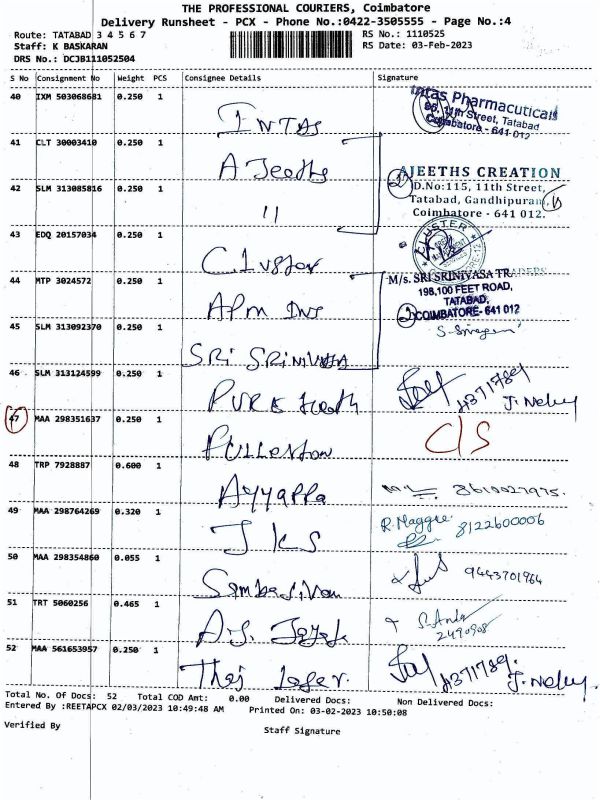 THE PROFESSIONAL COURIERS, Coimbatore
Delivery Runsheet - PCX - Phone No.:0422-3505555 - Page No.:4
Route: TATABAD 3 4 5 6 7
RS No.: 1110525
Staff: K BASKARAN
RS Date: 03-Feb-2023
DRS No.: DCJB111052504
S No Consignment No Weight PCS Consignee Details Signature
40 IXM 503068681 0.250 1
INTAS
Intas Pharmacuticals
96, 11th Street, Tatabad
Coimbatore - 641 012
41 CLT 30003410 0.250 1
A Jeeths
AJEETHS CREATION
42 SLM 313085816 0.250 1
11
D.No:115, 11th Street,
Tatabad, Gandhipuram,
Coimbatore - 641 012.
43 EDQ 20157034 0.250 1
Cluster
CLUSTER
44 MTP 3024572 0.250 1
APM
M/s. SRI SRINIVASA TRADERS
198,100 FEET ROAD,
TATABAD,
COIMBATORE- 641 012
45 SLM 313092370 0.250 1
SRI SRINIVASA
46 SLM 313124599 0.250 1
PURE
47 MAA 298351637 0.250 1
Fullerton
C/S
48 TRP 7928887 0.600 1
Ayyappa
8610027975.
49 MAA 298764269 0.320 1
J K S
R. Maggie
8122600006
50 MAA 298354860 0.055 1
Sambasivam
9443701964
51 TRT 5060256 0.465 1
A.S.
2490908
52 MAA 561653957 0.250 1
Thej Laser.
Total No. Of Docs: 52 Total COD Amt: 0.00 Delivered Docs: Non Delivered Docs:
Entered By :REETAPCX 02/03/2023 10:49:48 AM Printed On: 03-02-2023 10:50:08
Verified By
Staff Signature